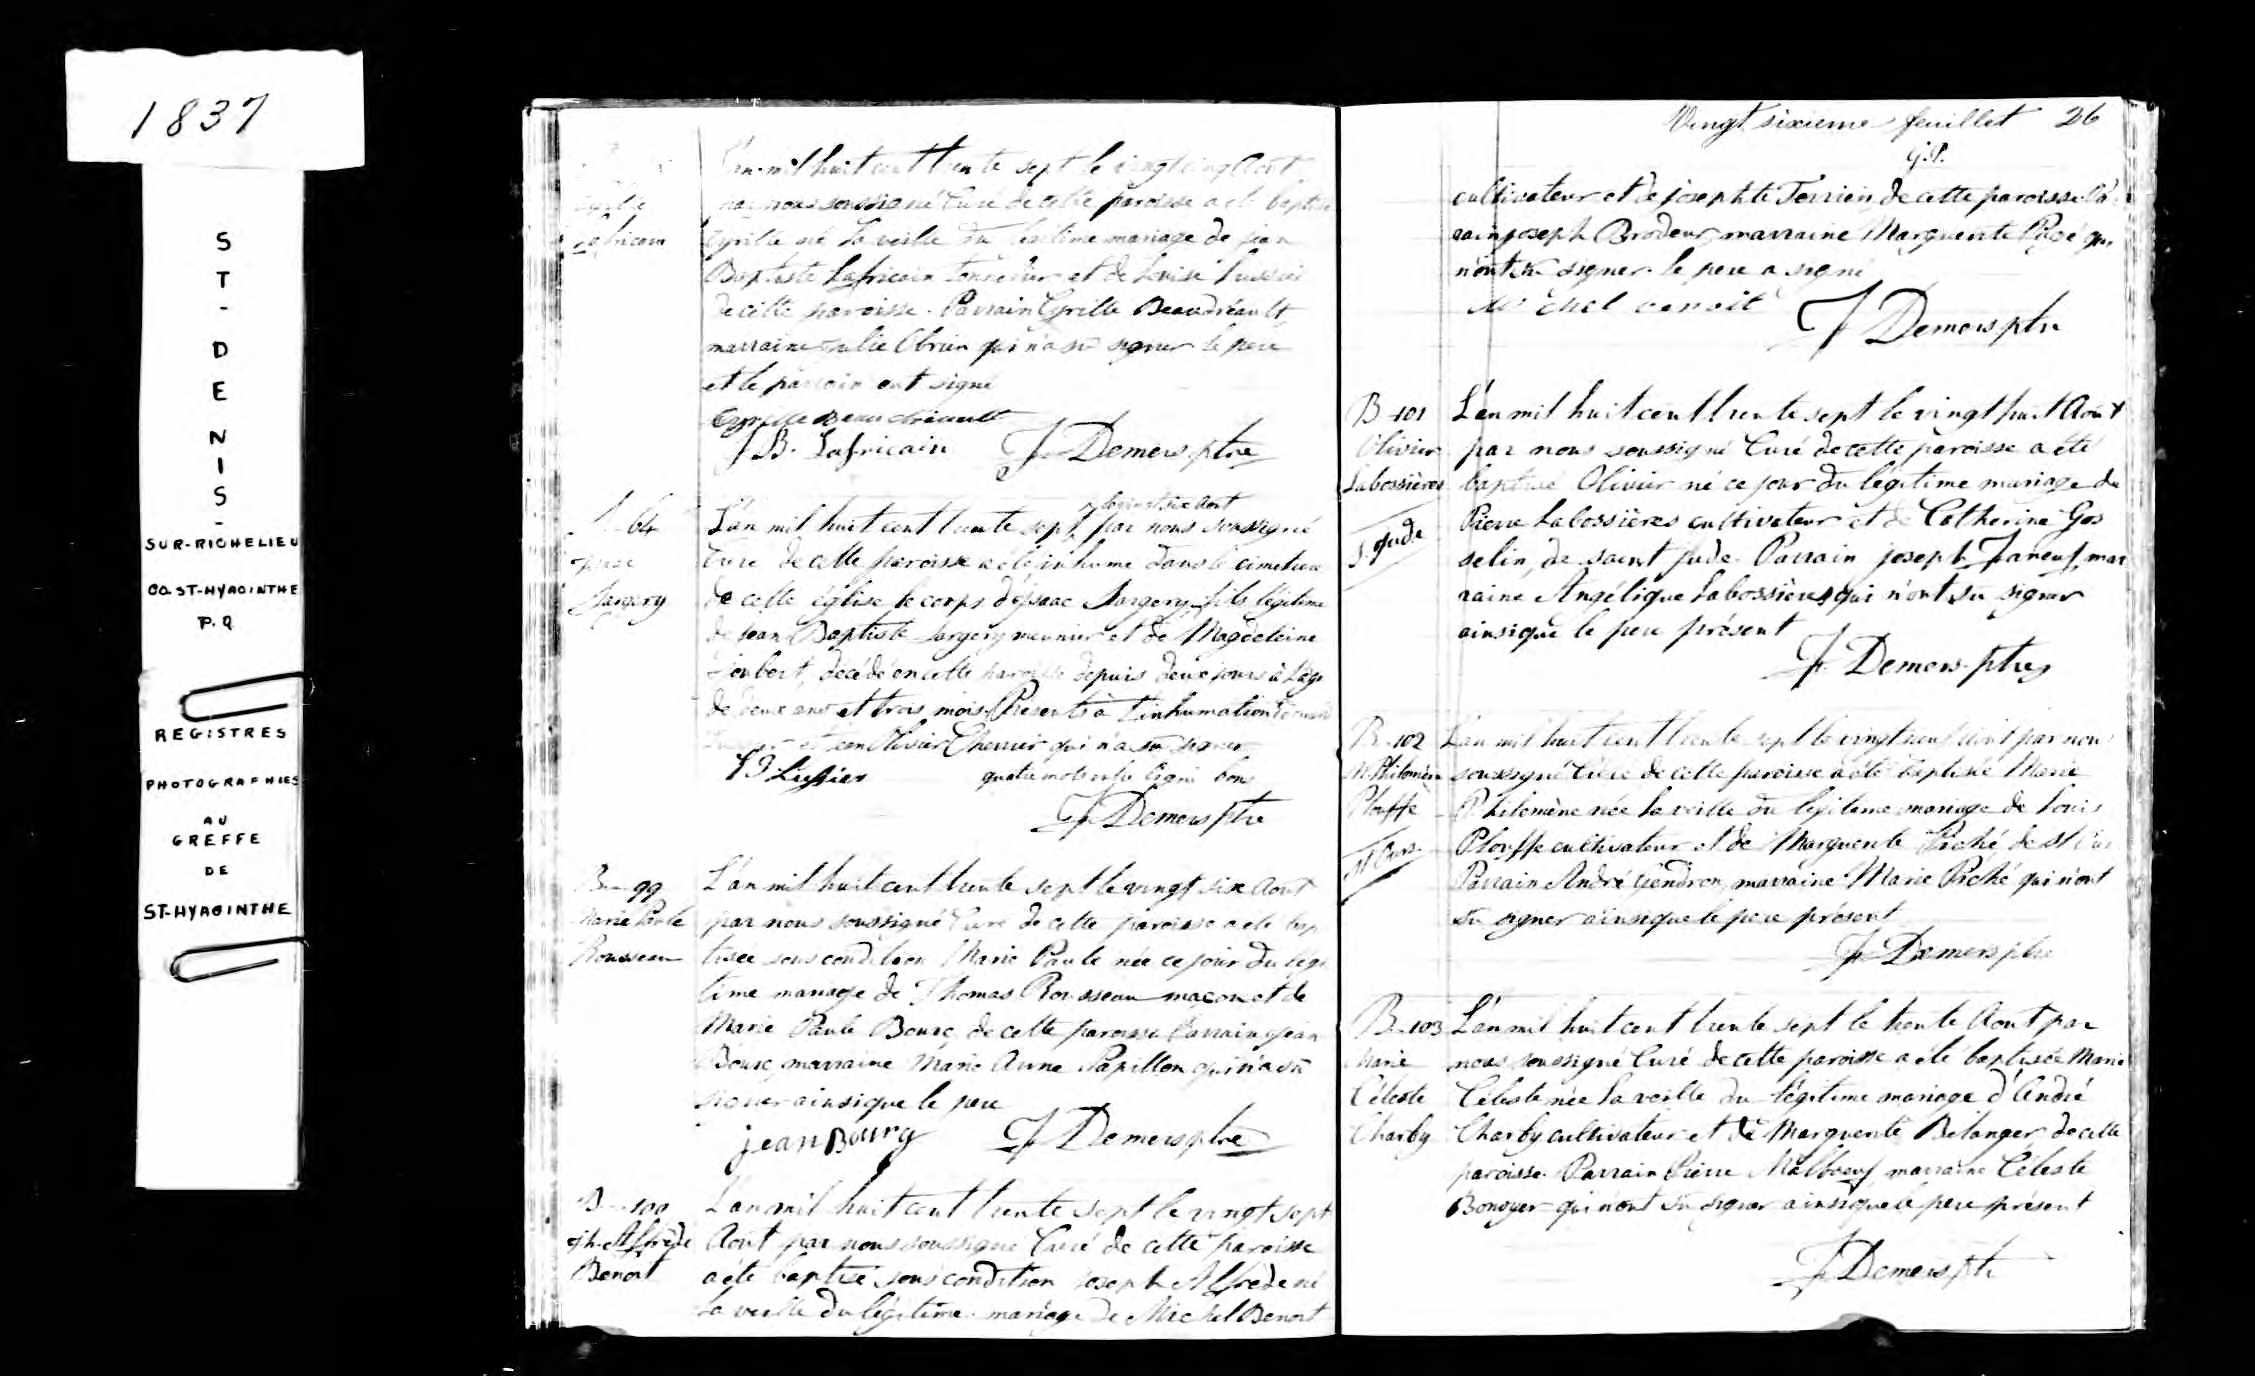 1837
ST-DENIS-
SUR-RICHELIEU
CO. ST-HYACINTHE
P.Q
REGISTRES
PHOTOGRAPHIES
AU
GREFFE
DE
ST-HYACINTHE
L'an mil huit cent trente sept le vingt cinq Août
par nous soussigné Curé de cette paroisse a été baptisé
Cyrille
Lafricain
Cyrille né la veille du légitime mariage de jean
Baptiste Lafricain et de Louise Lussier
de cette paroisse. Parrain Cyrille Beaudréault
marraine Julie Obrien qui n'a su signer le pere
et le parrain ont signé
Cyrille Beaudriault
J B. Lafricain J. Demers ptre
le vingt six Août
S 64 L'an mil huit cent trente sept par nous soussigné
Curé de cette paroisse a été inhumé dans le cimetiere
Sargery de cette église le corps d'isaac Sargery, fils légitime
de Jean Baptiste Sargery meunier et de Magdeleine
Joubert, décédé en cette paroisse depuis deux jours à l'age
de deux ans et trois mois. Présents à l'inhumation
Olivier Cherrier qui n'a su signer
Lussier quatre mots sur la ligne bons
J. Demers ptre
B-99 L'an mil huit cent trente sept le vingt six Août
Marie Paule par nous soussigné Curé de cette paroisse a été bap
Rousseau tisée sous condition Marie Paule née ce jour du légi
time mariage de Thomas Rousseau maçon et de
Marie Paule Bourc, de cette paroisse Parrain jean
Bourc, marraine Marie Anne Papillon qui n'a su
signer ainsi que le pere
jean Bourg J. Demers ptre
B-100 L'an mil huit cent trente sept le vingt sept
jh. Alfrède Août par nous soussigné Curé de cette paroisse
Benoit a été baptisé sous condition joseph Alfrède né
la veille du légitime mariage de Michel Benoit
Vingt sixieme feuillet 26
cultivateur et de josephte Terrien, de cette paroisse. Pa
rain joseph Brodeur, marraine Marguerite Pagé qui
n'ont su signer. le pere a signé
Michel benoit
J Demers ptre
B-101 L'an mil huit cent trente sept le vingt huit Août
Olivier par nous soussigné Curé de cette paroisse a été
Labossières baptisé Olivier né ce jour du légitime mariage de
Pierre Labossières cultivateur et de Catherine Gos
S. Jude selin, de saint jude. Parrain joseph Janeuf, mar
raine Angélique Labossières, qui n'ont su signer
ainsique le pere présent
J. Demers. Ptre
B-102 L'an mil huit cent trente sept le vingt neuf Août par nous
M. Philomène soussigné Curé de cette paroisse a été baptisée Marie
Plouffe Philomène née la veille du légitime mariage de Louis
Plouffe cultivateur et de Marguerite Piché de St Ours
St Ours. Parrain André Gendron, marraine Marie Piché qui n'ont
su signer ainsique le pere présent
J. Demers ptre
B-103 L'an mil huit cent trente sept le trente Août par
Marie nous soussigné Curé de cette paroisse a été baptisée Marie
Céleste Céleste née la veille du légitime mariage d'André
Charby Charby cultivateur et de Marguerite Bélanger, de cette
paroisse. Parrain Pierre Malboeuf, marraine Céleste
Bonoyer qui n'ont su signer ainsique le pere présent
J. Demers ptre